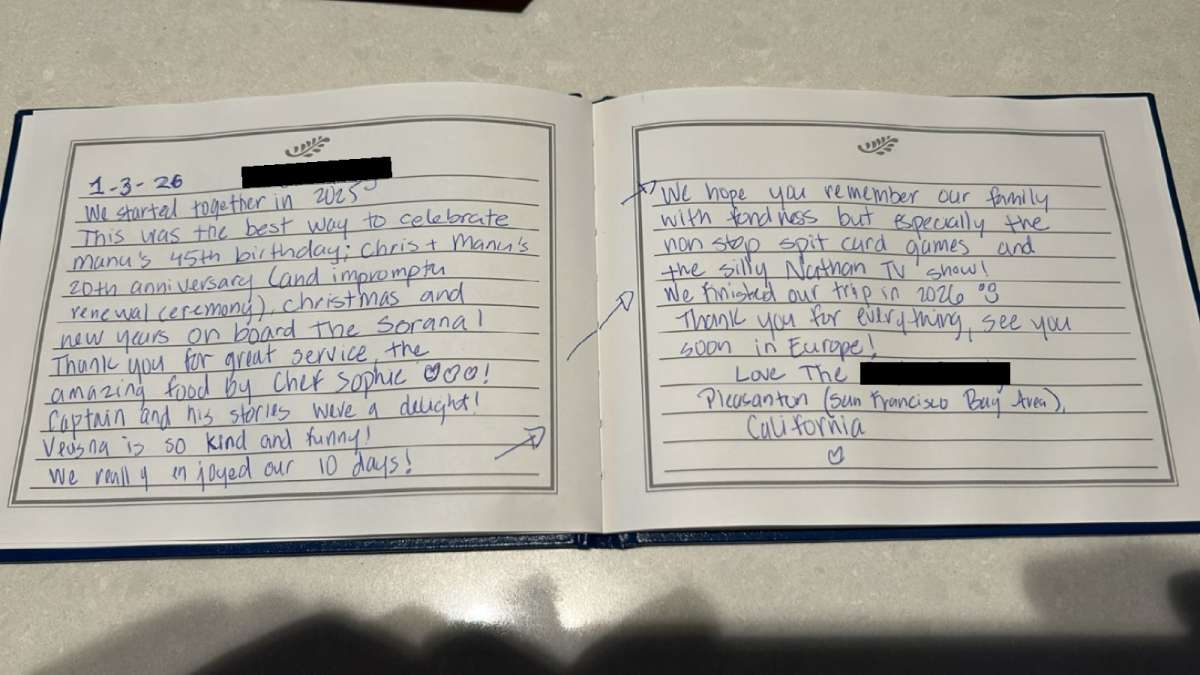 1-3-26
We started together in 2025
This was the best way to celebrate
Manu's 45th birthday; Chris + Manu's
20th anniversary (and impromptu
renewal ceremony), Christmas and
new years on board the Sorana!
Thank you for great service, the
amazing food by Chef Sophie ♡♡♡!
Captain and his stories were a delight!
Veasna is so kind and funny!
We really enjoyed our 10 days!
We hope you remember our family
with fondness but especially the
non stop spit card games and
the silly Nathan TV show!
We finished our trip in 2026
Thank you for everything, see you
soon in Europe!
Love The
Pleasanton (San Francisco Bay Area),
California
♡